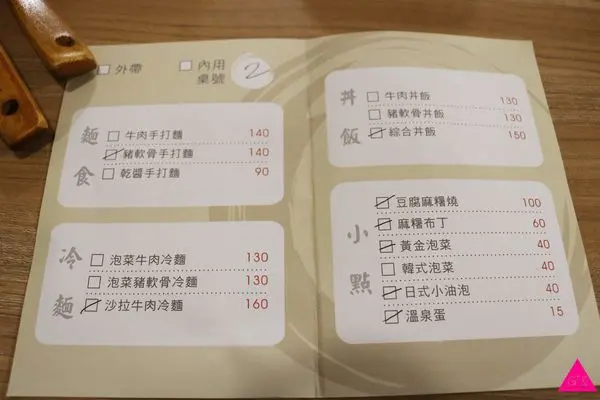 外帶
內用
桌號
2
麵食
牛肉手打麵 140
豬軟骨手打麵 140
乾醬手打麵 90
冷麵
泡菜牛肉冷麵 130
泡菜豬軟骨冷麵 130
沙拉牛肉冷麵 160
丼飯
牛肉丼飯 130
豬軟骨丼飯 130
綜合丼飯 150
小點
豆腐麻糬燒 100
麻糬布丁 60
黃金泡菜 40
韓式泡菜 40
日式小油泡 40
溫泉蛋 15